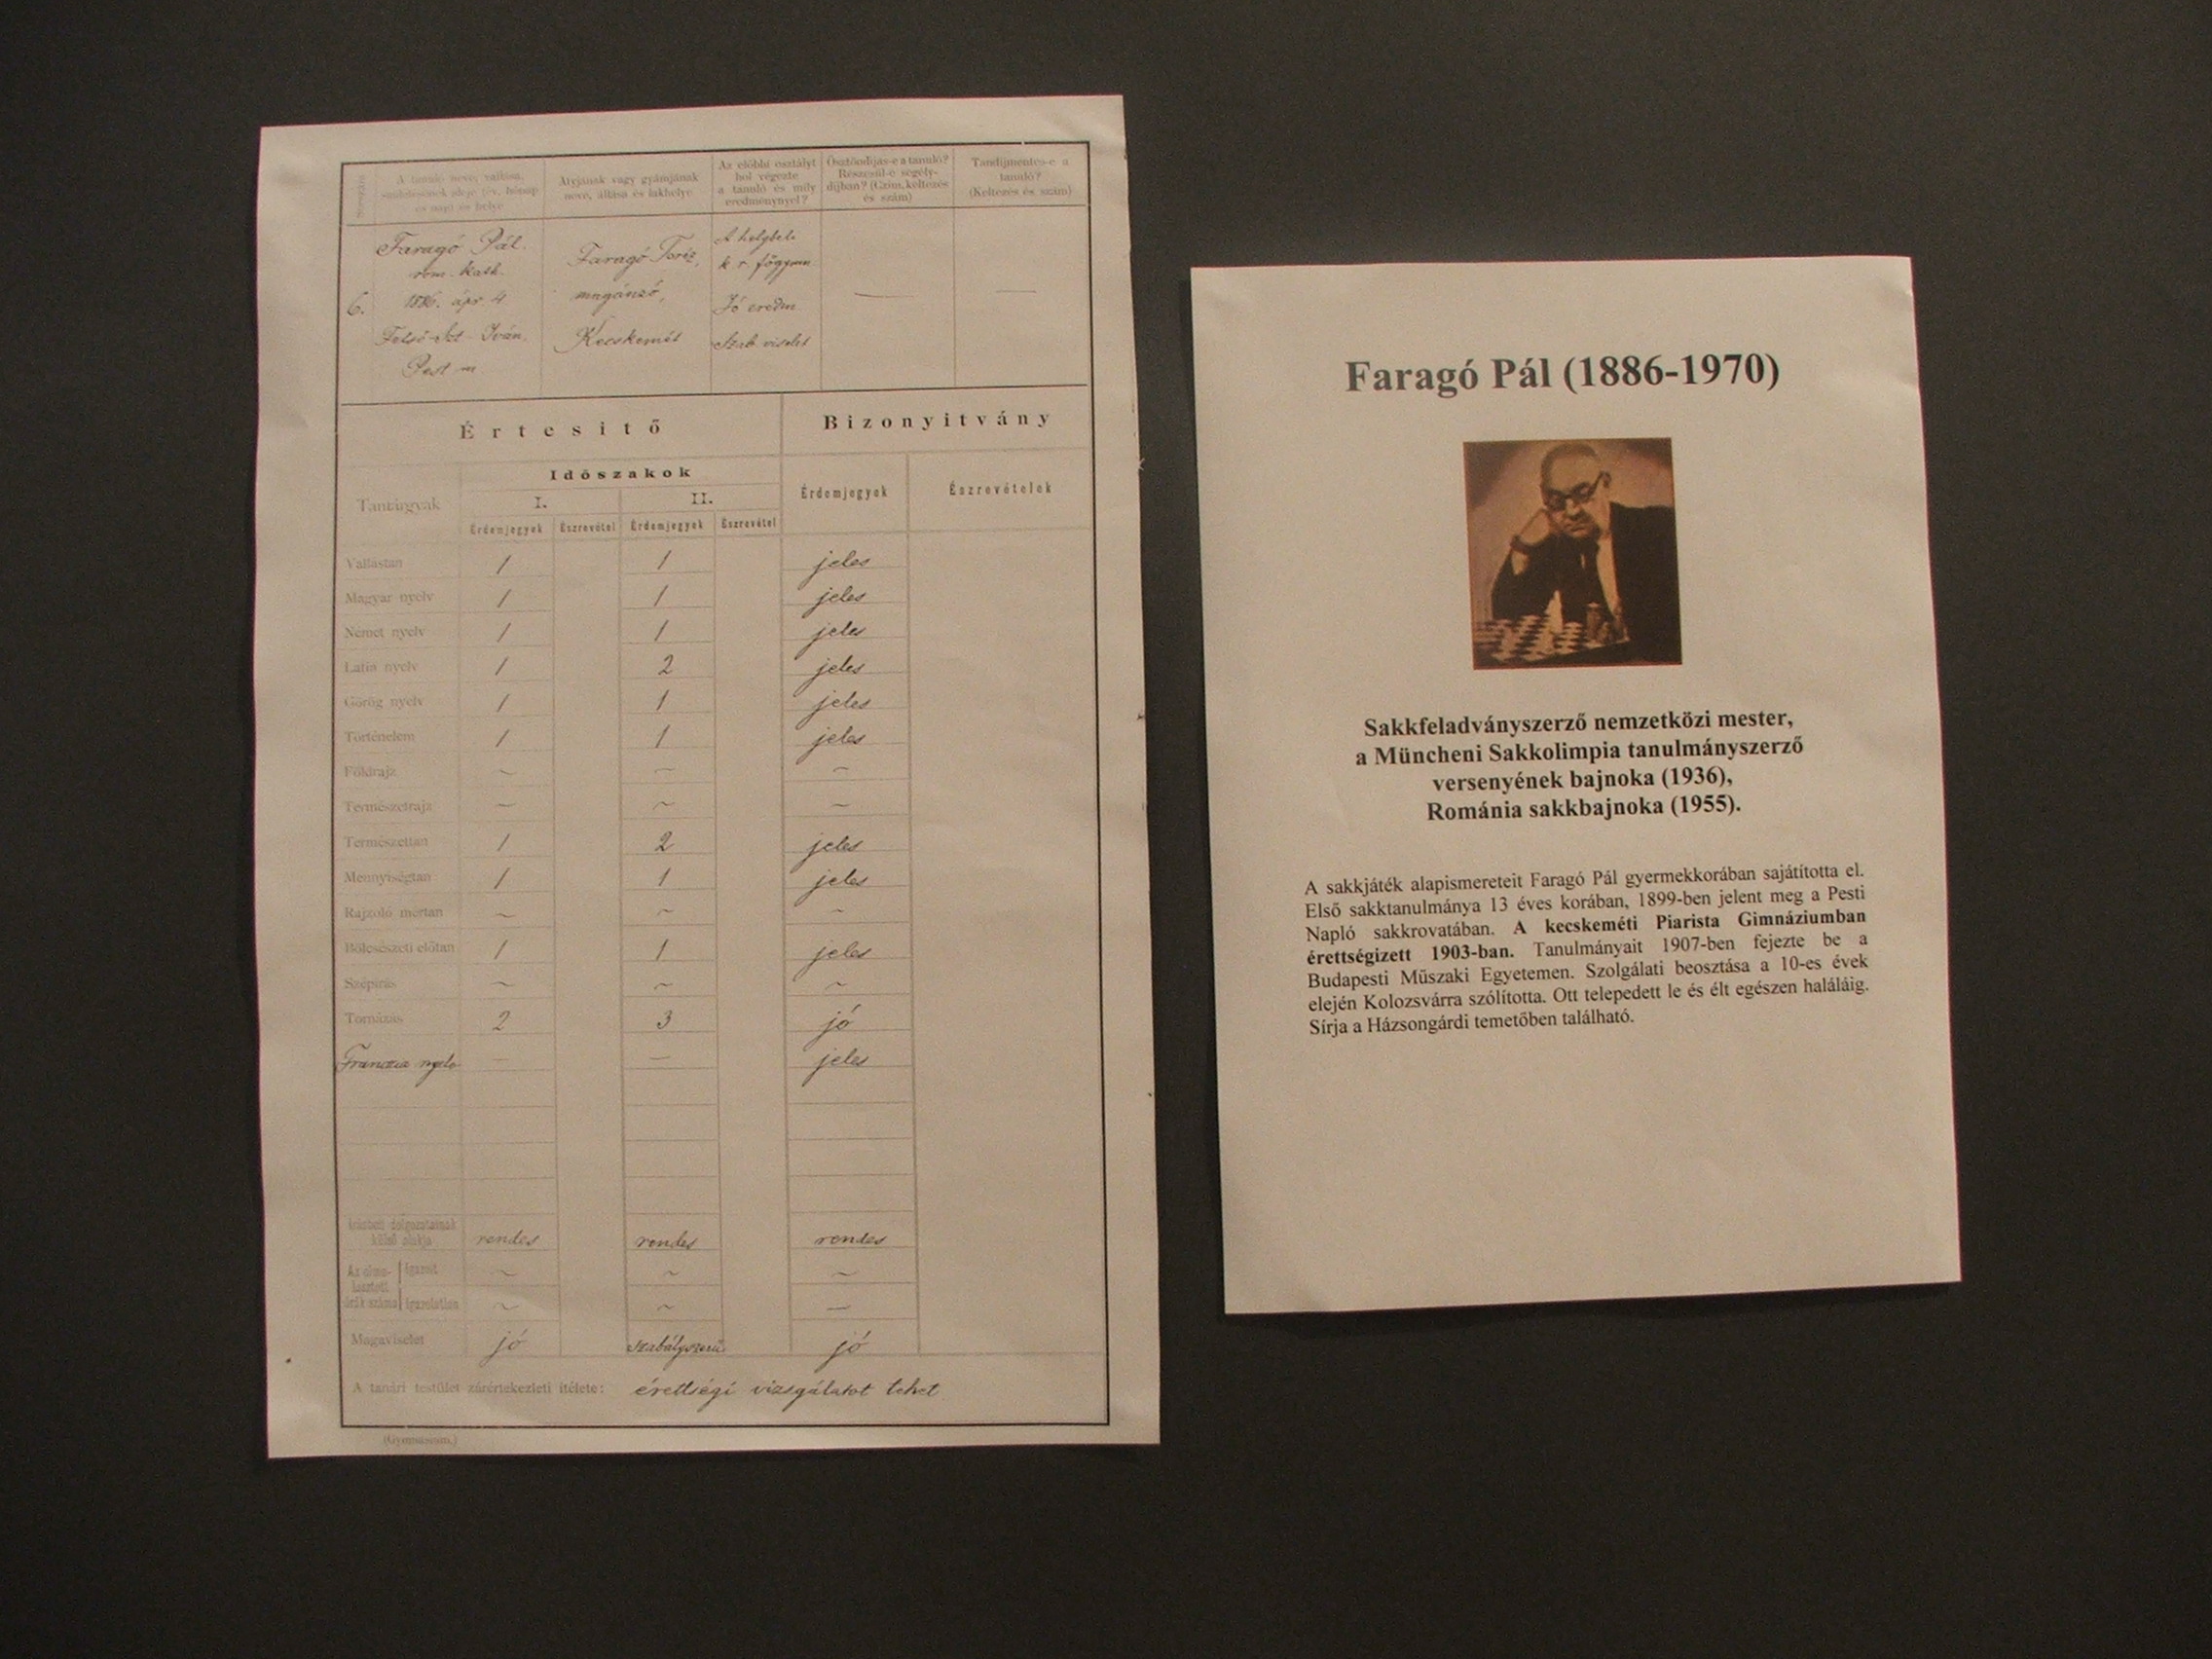 A tanuló neve, vallása,
születésének ideje (év, hónap
és nap) és helye
Atyjának vagy gyámjának
neve, állása és lakhelye
Az előbbi osztályt
hol végezte
a tanuló és mily
eredménynyel?
Ösztöndíjas-e a tanuló?
Részesül-e segély-
díjban? (Czím, keltezés
és szám)
Tandíjmentes-e a
tanuló?
(Keltezés és szám)
6.
Faragó Pál.
róm. kath.
1886. ápr. 4
Felső-Szt-Iván.
Pest m
Faragó
magánzó,
Kecskemét
A helybeli
k r. főgymn
Jó eredm
Szab. viselet
Értesitő
Bizonyitvány
Tantárgyak
Időszakok
I.
II.
Érdemjegyek
Észrevétel
Érdemjegyek
Észrevétel
Érdemjegyek
Észrevételek
Vallástan 1 1 jeles
Magyar nyelv 1 1 jeles
Német nyelv 1 1 jeles
Latin nyelv 1 2 jeles
Görög nyelv 1 1 jeles
Történelem 1 1 jeles
Földrajz ~ ~ ~
Természetrajz ~ ~ ~
Természettan 1 2 jeles
Mennyiségtan 1 1 jeles
Rajzoló mértan ~ ~ ~
Bölcsészeti előtan 1 1 jeles
Szépírás ~ ~ ~
Tornázás 2 3 jó
Franczia nyelv — — jeles
Írásbeli dolgozatainak
külső alakja rendes rendes rendes
Az elmu-
lasztott
órák száma
igazolt ~ ~ ~
igazolatlan ~ ~ —
Magaviselet jó szabályszerű jó
A tanári testület záróértekezleti itélete: érettségi vizsgálatot tehet
(Gymnasium.)
Faragó Pál (1886-1970)
Sakkfeladványszerző nemzetközi mester,
a Müncheni Sakkolimpia tanulmányszerző
versenyének bajnoka (1936),
Románia sakkbajnoka (1955).
A sakkjáték alapismereteit Faragó Pál gyermekkorában sajátította el.
Első sakktanulmánya 13 éves korában, 1899-ben jelent meg a Pesti
Napló sakkrovatában. A kecskeméti Piarista Gimnáziumban
érettségizett 1903-ban. Tanulmányait 1907-ben fejezte be a
Budapesti Műszaki Egyetemen. Szolgálati beosztása a 10-es évek
elején Kolozsvárra szólította. Ott telepedett le és élt egészen haláláig.
Sírja a Házsongárdi temetőben található.